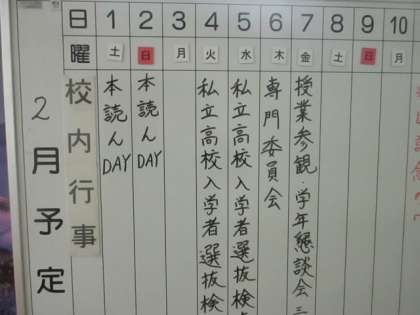 2月予定
日 1 2 3 4 5 6 7 8 9 10
曜 土 日 月 火 水 木 金 土 日 月
校内行事
本読んDAY
本読んDAY
私立高校入学者選抜検
私立高校入学者選抜検
専門委員会
授業参観・学年懇談会